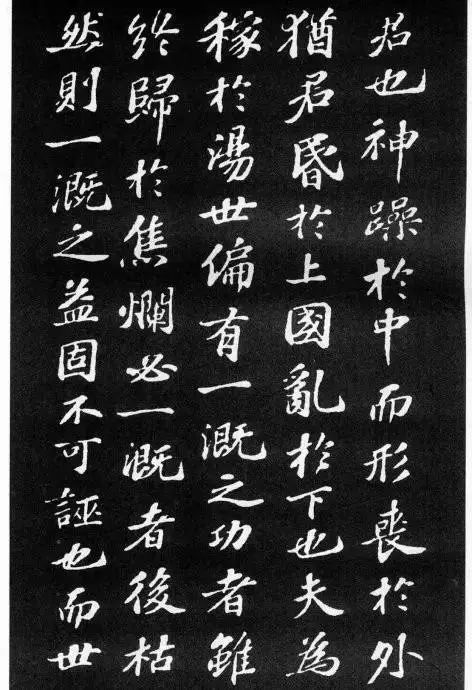 君也神躁於中而形喪於外
猶君昏於上國亂於下也夫為
稼於湯世偏有一溉之功者雖
終歸於焦爛必一溉者後枯
然則一溉之益固不可誣也而世